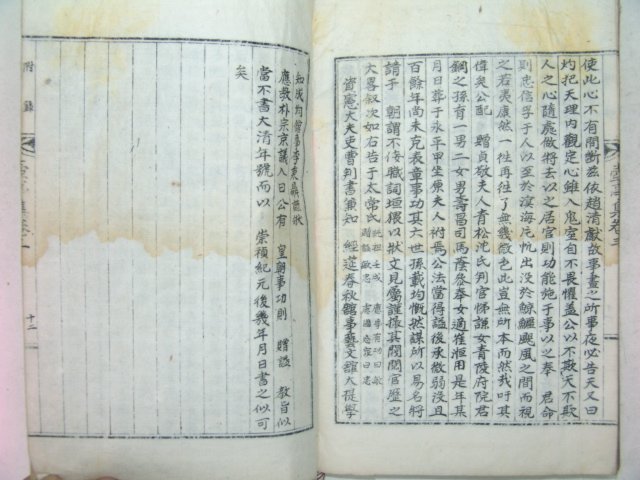 使此心不有間斷玆依趙清獻故事晝之所事夜必告天又曰
灼把天理內觀定心雖入鬼室自不畏懼盖公以不欺天不欺
人之心隨處做將去以之居官則功能施于事以之奉 君命
則忠信孚于人以至於溟海片帆出沒於鯨鱷颶風之間而視
之若夷康然一徃再徃了無幾微色此豈無所本而然我吁其
偉矣公配 贈貞敬夫人青松沈氏判官悌謙女青陵府院君
鋼之孫育一男二女男壽昌司馬蔭參奉女適崔恒用是年某
月日葬于永平甲坐原夫人祔焉公法當得謚後承微弱沒且
百餘年尚未克表章事功其六世孫載均慨然謀所以易名將
請于 朝謂不侫職詞垣猥以狀文見屬謹掇其閥閱官歷之
大畧叙次如右告于太常氏
資憲大夫吏曹判書兼知 經筵春秋館事藝文舘大提學
知成均舘事李東
應教朴宗京議入曰公有 皇朝事功則 贈謚 教旨似
當不書大清年號而以 崇禎紀元後幾年月日書之似可
矣
附錄
十二